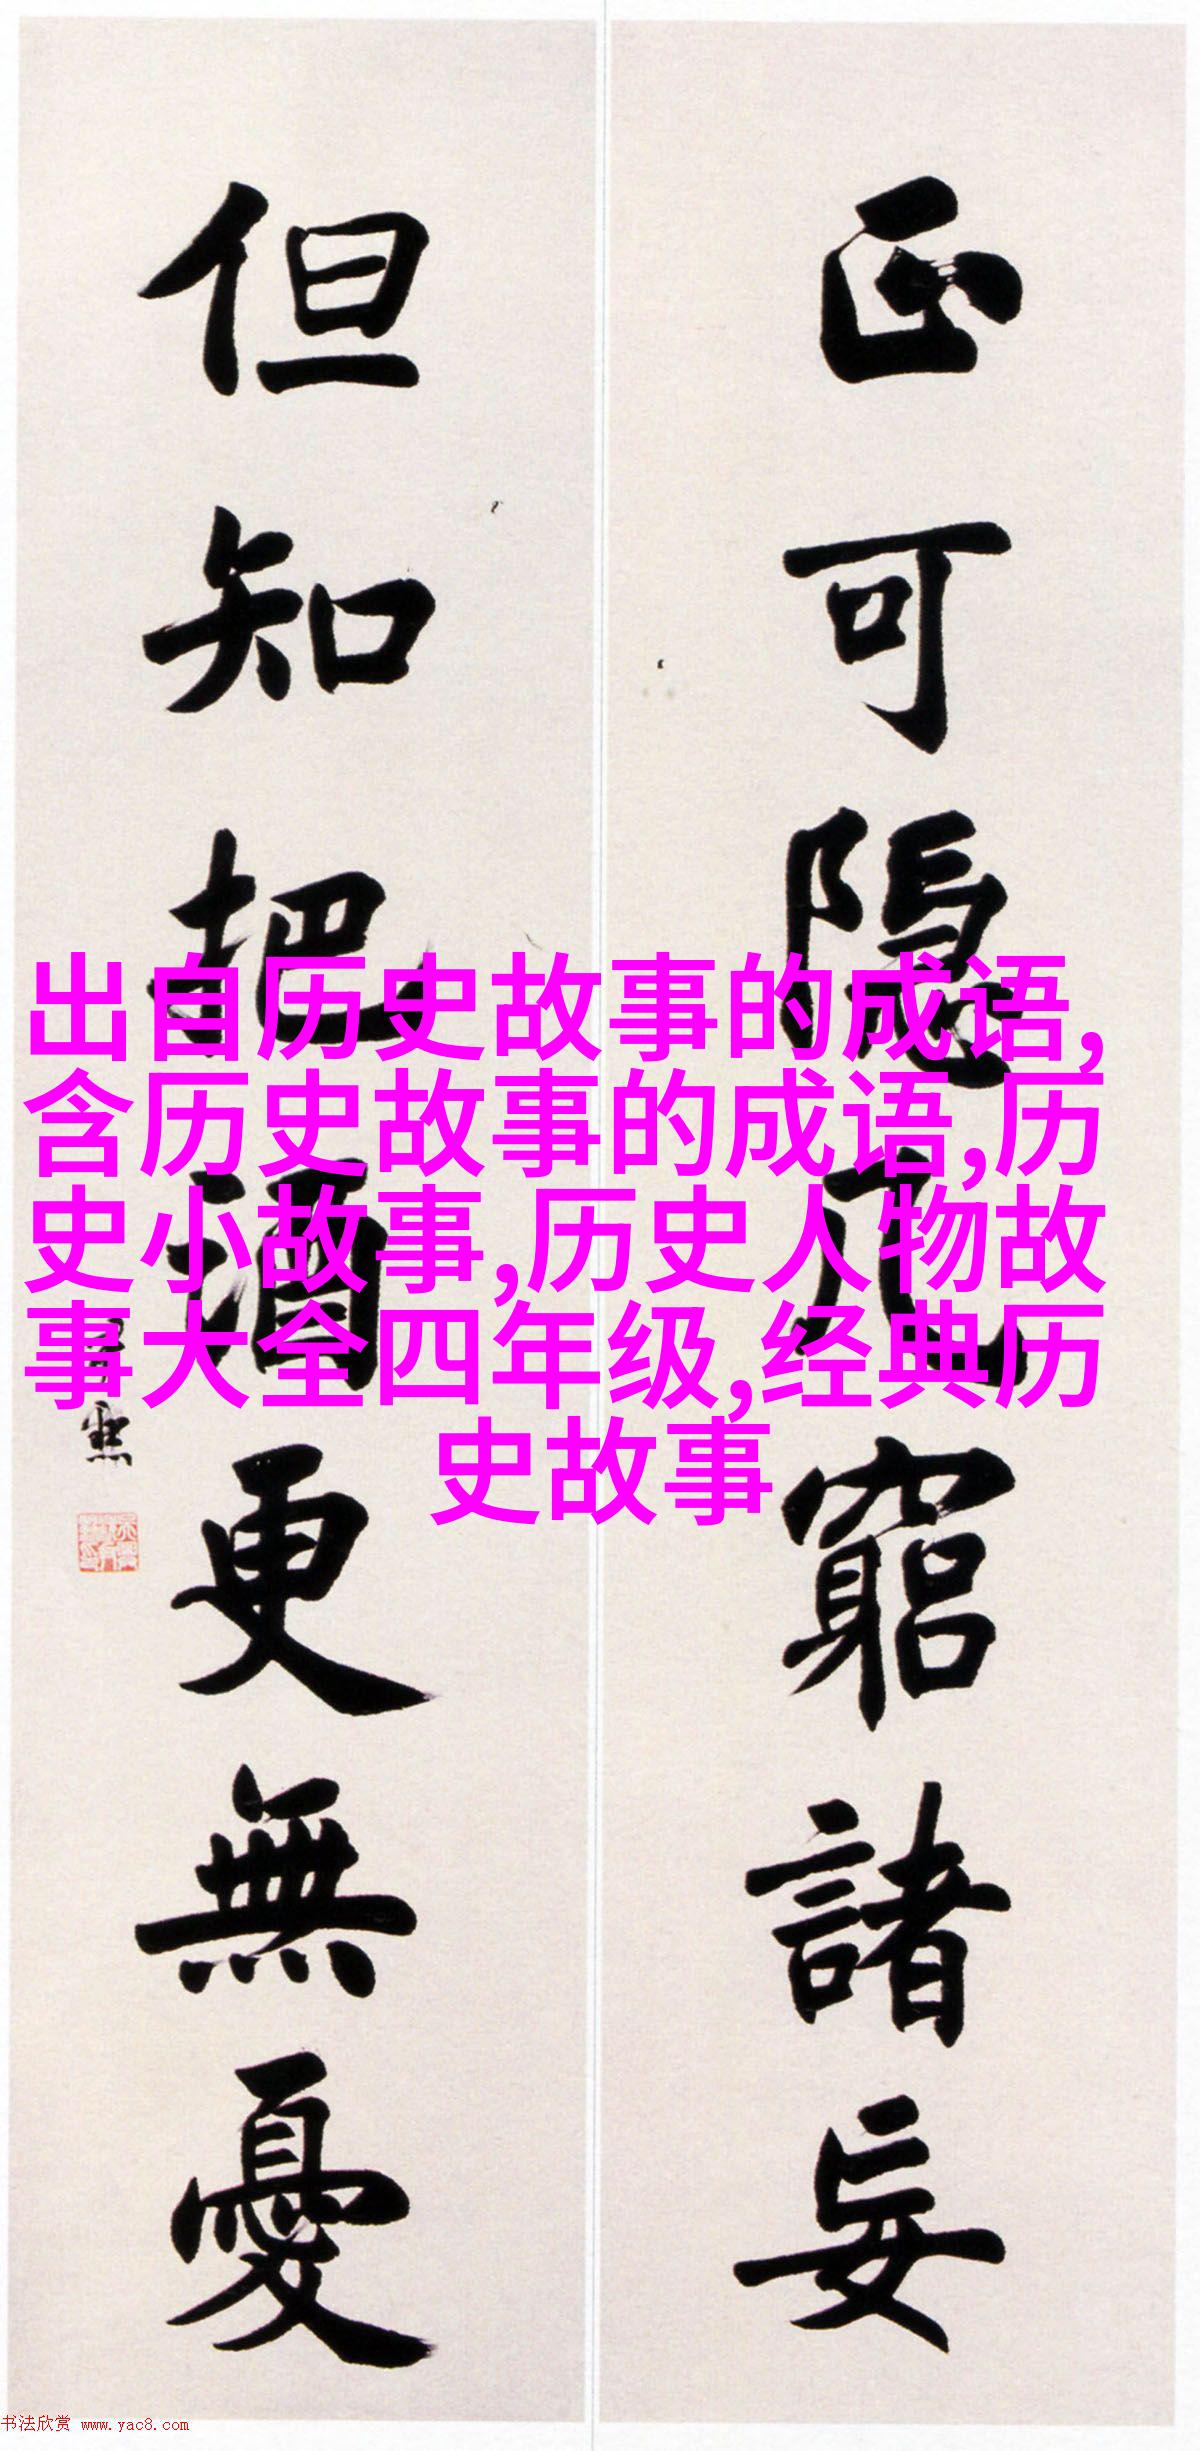 正可隱几窮諸妄
但知把酒更無憂
出自历史故事的成语,
含历史故事的成语,历
史小故事,历史人物故
事大全四年级,经典历
史故事
书法欣赏 www.yac8.com